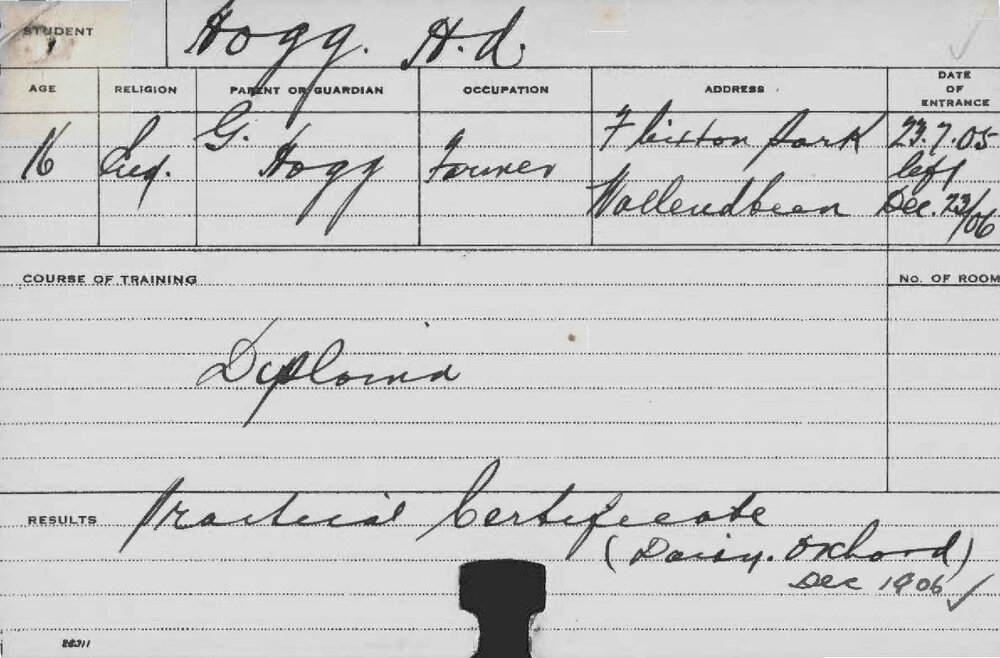 STUDENT Hogg. H.A.
AGE RELIGION PARENT OR GUARDIAN OCCUPATION ADDRESS DATE OF ENTRANCE
16 G. Hogg Farmer Flixton Park 23.7.05
Wallendbeen left Dec. 23/06
COURSE OF TRAINING No. OF ROOM
Diploma
RESULTS Practical Certificate
(Dairy. Orchard)
Dec 1906